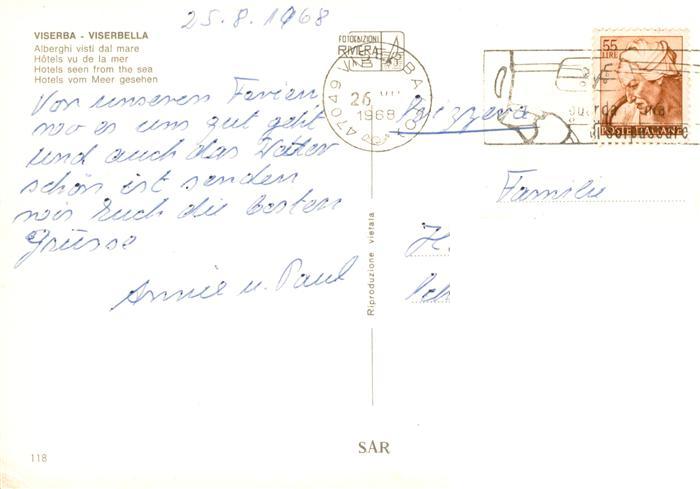 25.8.1968
VISERBA - VISERBELLA
Alberghi visti dal mare
Hôtels vu de la mer
Hotels seen from the sea
Hotels vom Meer gesehen
Von unseren Ferien
wo es uns gut geht
und auch das Wetter
schön ist senden
wir Euch die besten
Grüsse
Annie u. Paul
FOTOEDIZIONI
RIVIERA
47049 VISERBA (FO)
26 1968
55
LIRE
POSTE ITALIANE
Svizzera
Familie
H.
Riproduzione vietata
118
SAR